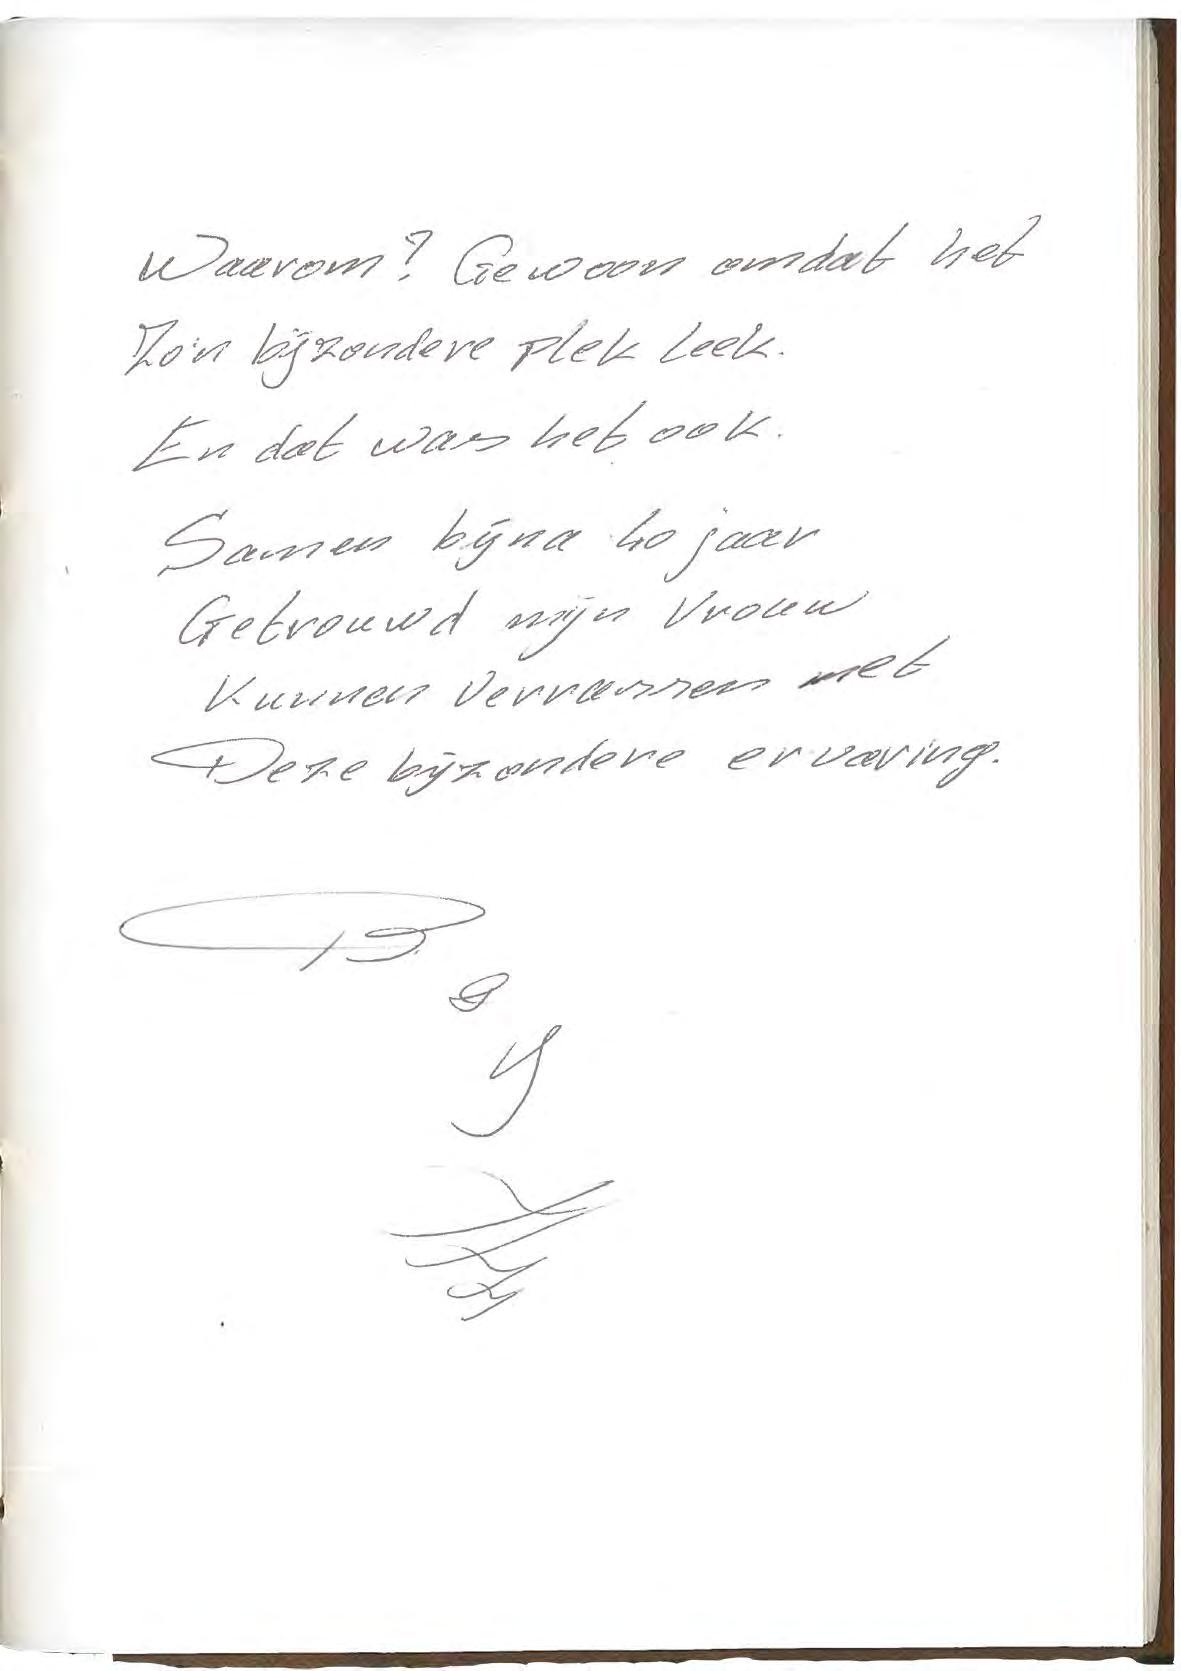 Waarom? Gewoon omdat het
Zo'n bijzondere plek leek.
En dat was het ook.
Samen bijna 40 jaar
Getrouwd mijn Vrouw
Kunnen Verrassen met
Deze bijzondere ervaring.